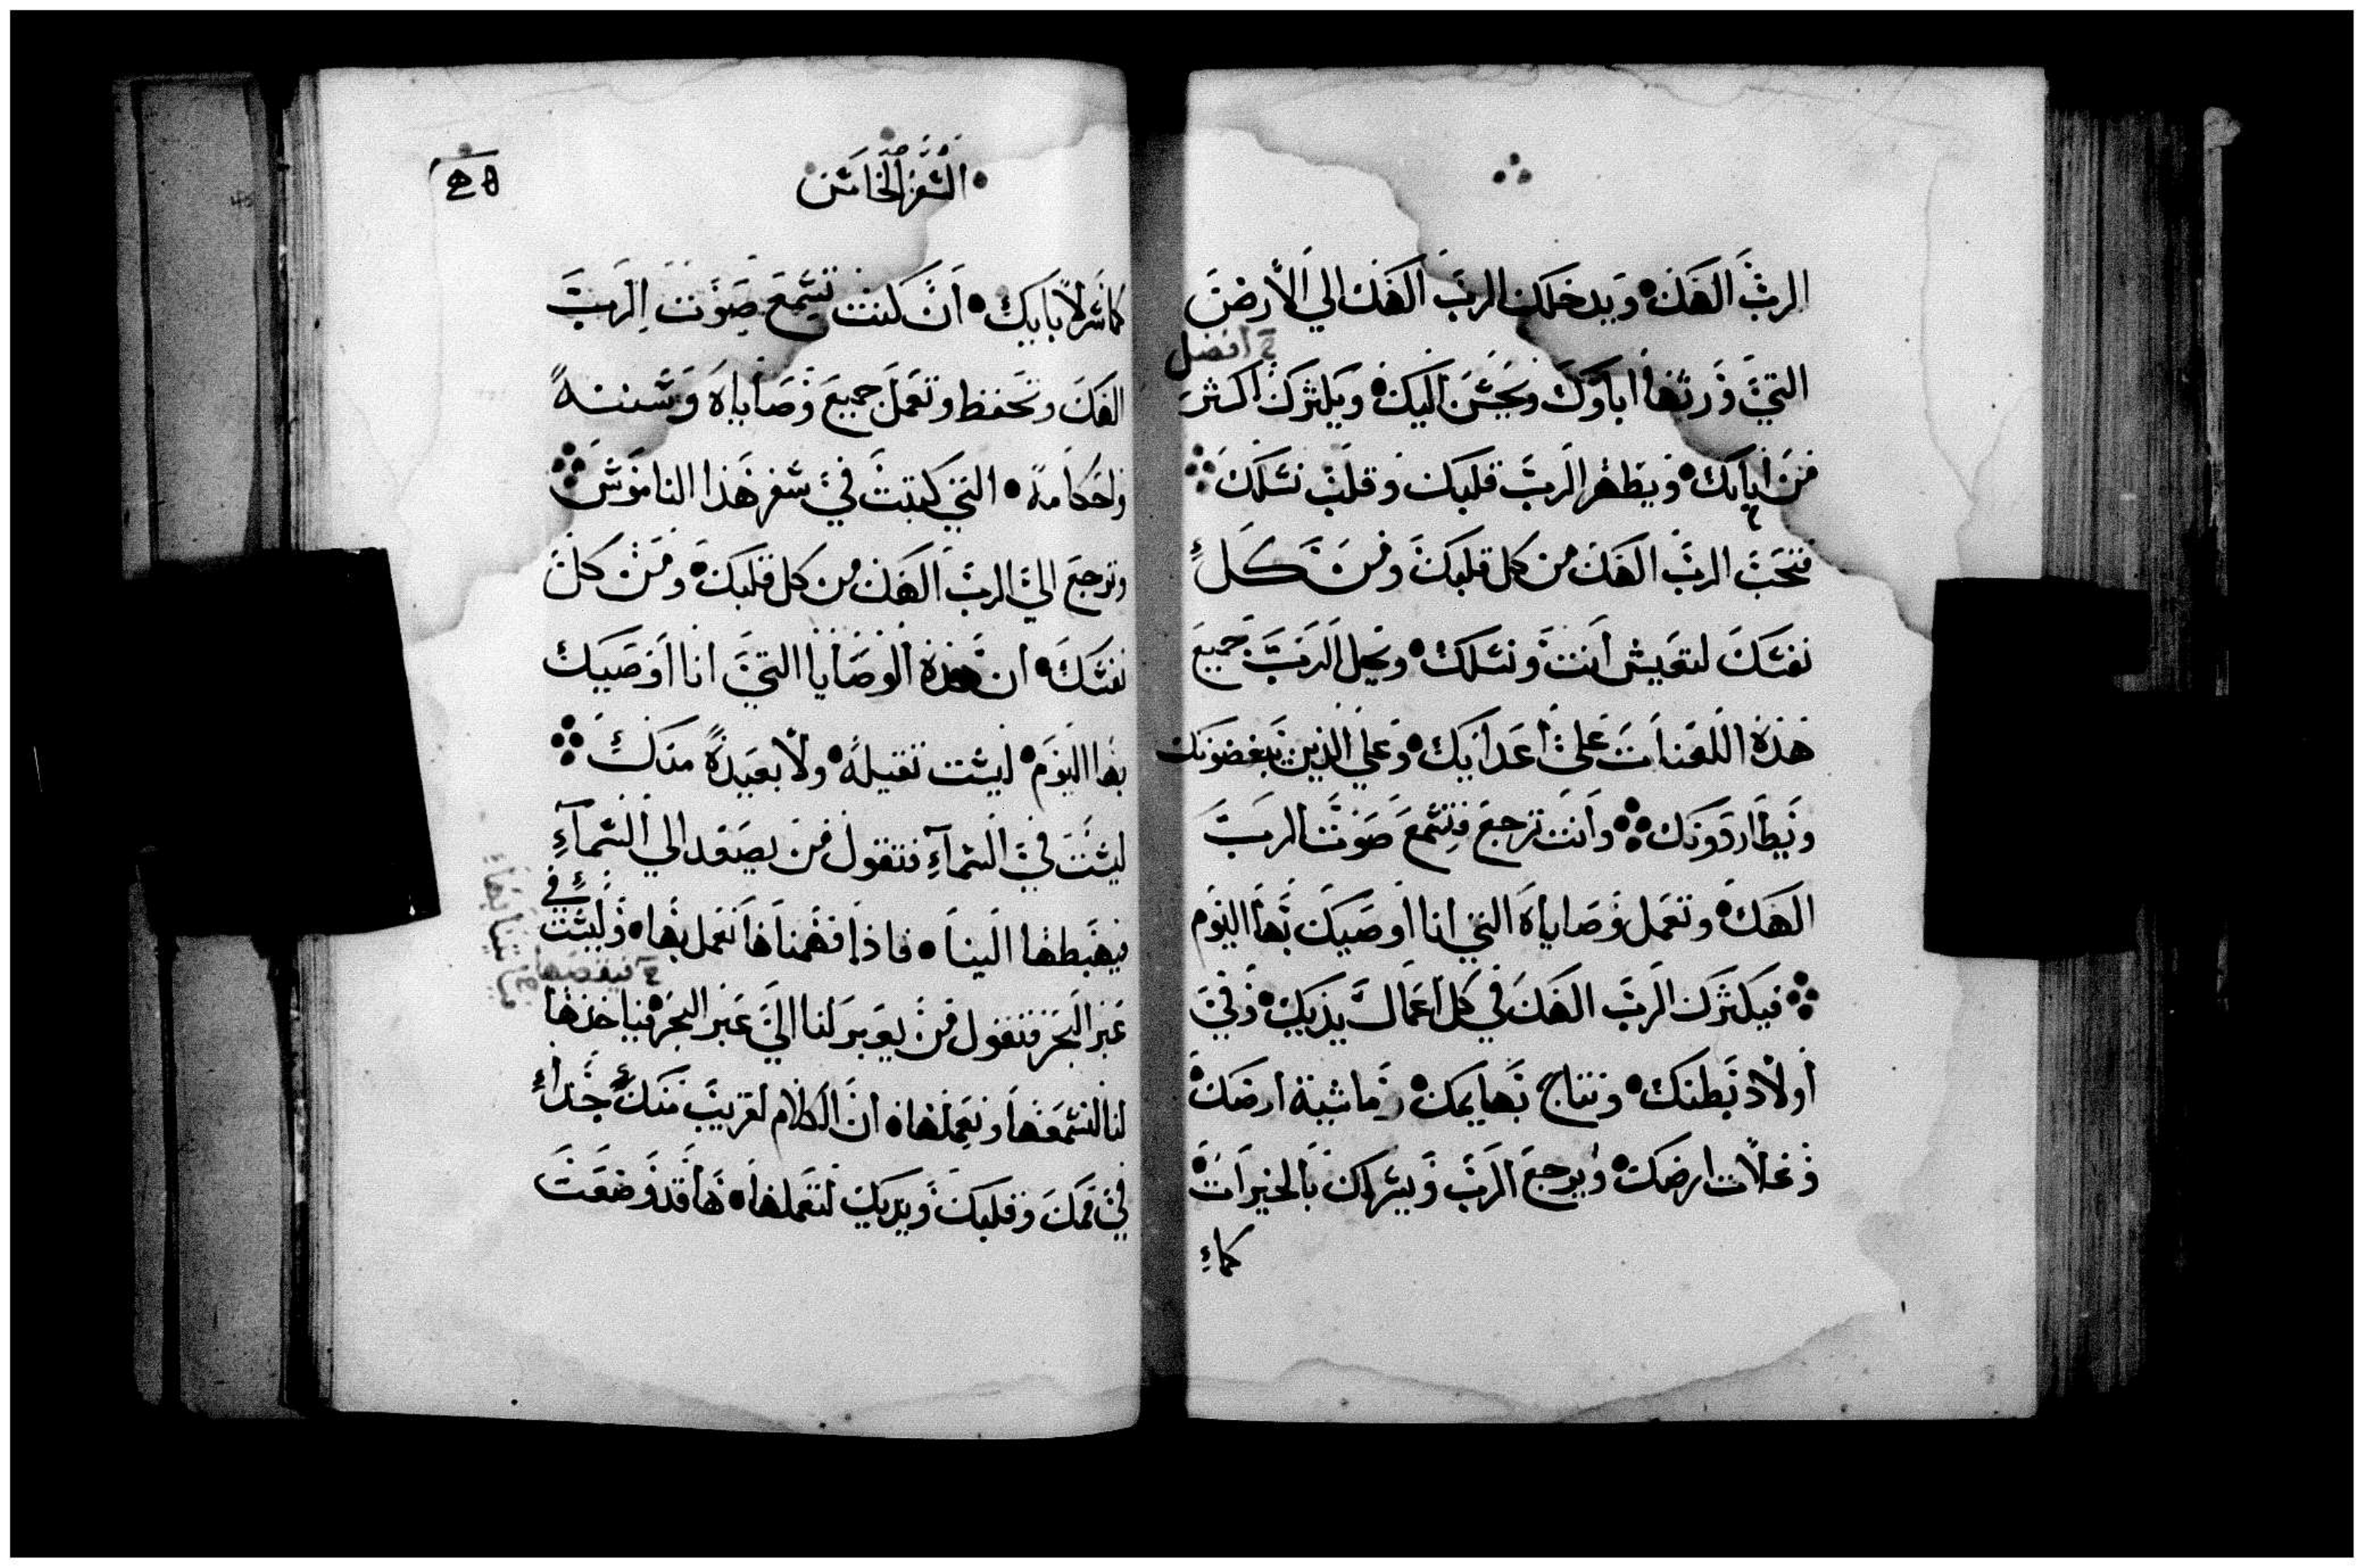 الرب الهك • ويدخلك الرب الهك الي الارض
افضل
التي ورثها اباوك ويحسن اليك • ويكثرك اكثر
من ابايك • ويطهر الرب قلبك وقلب نسلك
فتحب الرب الهك من كل قلبك ومن كل
نفسك لتعيش انت ونسلك • ويحل الرب جميع
هذه اللعنات علي اعدايك • وعلي الذين يبغضونك
ويطاردونك وانت ترجع فتسمع صوت الرب
الهك • وتعمل وصاياه التي انا اوصيك بها اليوم
فيكثرك الرب الهك في كل اعمال يديك • وفي
اولاد بطنك • ونتاج بهايمك • وماشية ارضك •
وغلات ارضك • ويرجع الرب ويسر بك بالخيرات •
كما
• السفر الخامس
كما سر لابايك • ان كنت تسمع صوت الرب
الهك وتحفظ وتعمل جميع وصاياه وسننه
واحكامه • التي كتبت في سفر هذا الناموس
وترجع الي الرب الهك من كل قلبك • ومن كل
نفسك • ان هذه الوصايا التي انا اوصيك
بها اليوم • ليست ثقيلة • ولا بعيدة منك
ليست في السماء فتقول من يصعد الي السماء
فيهبطها الينا • فاذا فهمناها نعمل بها • وليست في
عبر البحر فتقول من يعبر لنا الي عبر البحر • فياخذها
لنا لنسمعها ونعملها • ان الكلام لقريب منك جدا
في فمك وقلبك ويديك لتعملها • ها قد وضعت